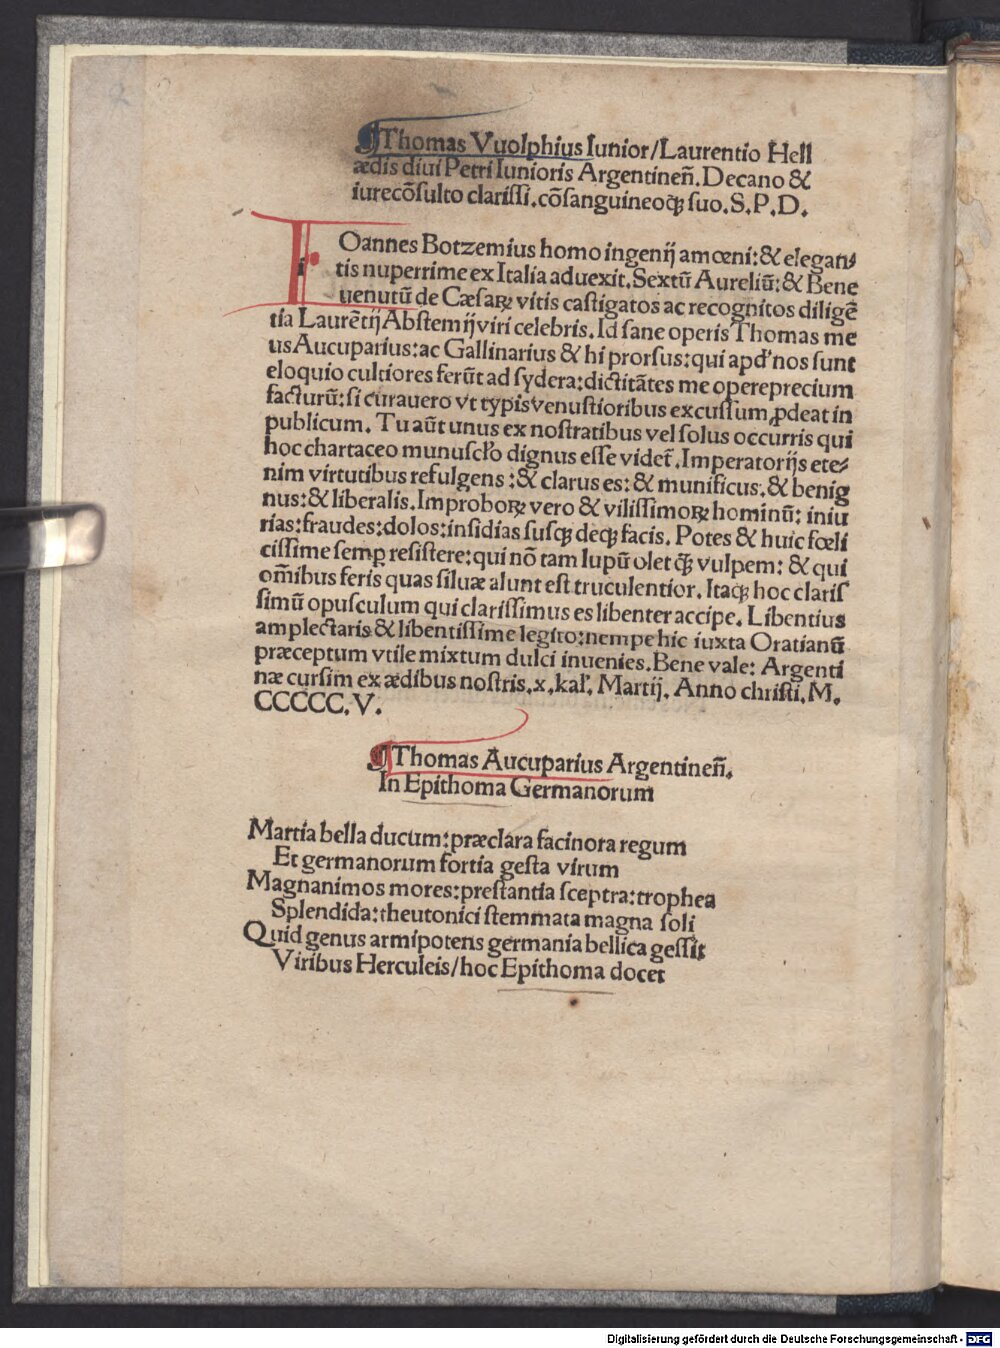 ¶Thomas Vuolphius Iunior/Laurentio Hell
ædis diui Petri Iunioris Argentineñ.Decano &
iurecõsulto clarissi.cõsanguineoqꝫ suo.S.P.D.
IOannes Botzemius homo ingenij amœni:& elegan⸗
tis nuperrime ex Italia aduexit.Sextũ Aureliũ:& Bene
uenutũ de Cæsaꝝ vitis castigatos ac recognitos diligẽ
tia Laurẽtij Abstemij viri celebris.Id sane operis Thomas me
us Aucuparius:ac Gallinarius & hi prorsus:qui apđ nos sunt
eloquio cultiores ferũt ad sydera:dictitãtes me opereprecium
facturũ:si curauero vt typis venustioribus excussum ꝓdeat in
publicum. Tu aũt unus ex nostratibus vel solus occurris qui
hoc chartaceo munusclo dignus esse videt̃.Imperatorijs ete⸗
nim virtutibus refulgens:& clarus es:& munificus.& benig
nus:& liberalis.Improboꝝ vero & vilissimoꝝ hominũ: iniu
rias:fraudes:dolos:insidias susqꝫ deqꝫ facis. Potes & huic fœli
cissime semꝑ resistere:qui nõ tam lupũ olet qꝫ̃ vulpem: & qui
om̃ibus feris quas siluæ alunt est truculentior. Itaqꝫ hoc claris
simũ opusculum qui clarissimus es libenter accipe. Libentius
amplectaris & libentissime legito:nempe hic iuxta Oratianũ
præceptum vtile mixtum dulci inuenies.Bene vale: Argenti
næ cursim ex ædibus nostris.x.kal. Martij. Anno christi.M.
CCCCC.V.
¶Thomas Aucuparius Argentineñ.
In Epithoma Germanorum
Martia bella ducum:præclara facinora regum
Et germanorum fortia gesta virum
Magnanimos mores:prestantia sceptra:trophea
Splendida:theutonici stemmata magna soli
Quid genus armipotens germania bellica gessit
Viribus Herculeis/hoc Epithoma docet
Digitalisierung gefördert durch die Deutsche Forschungsgemeinschaft - DFG